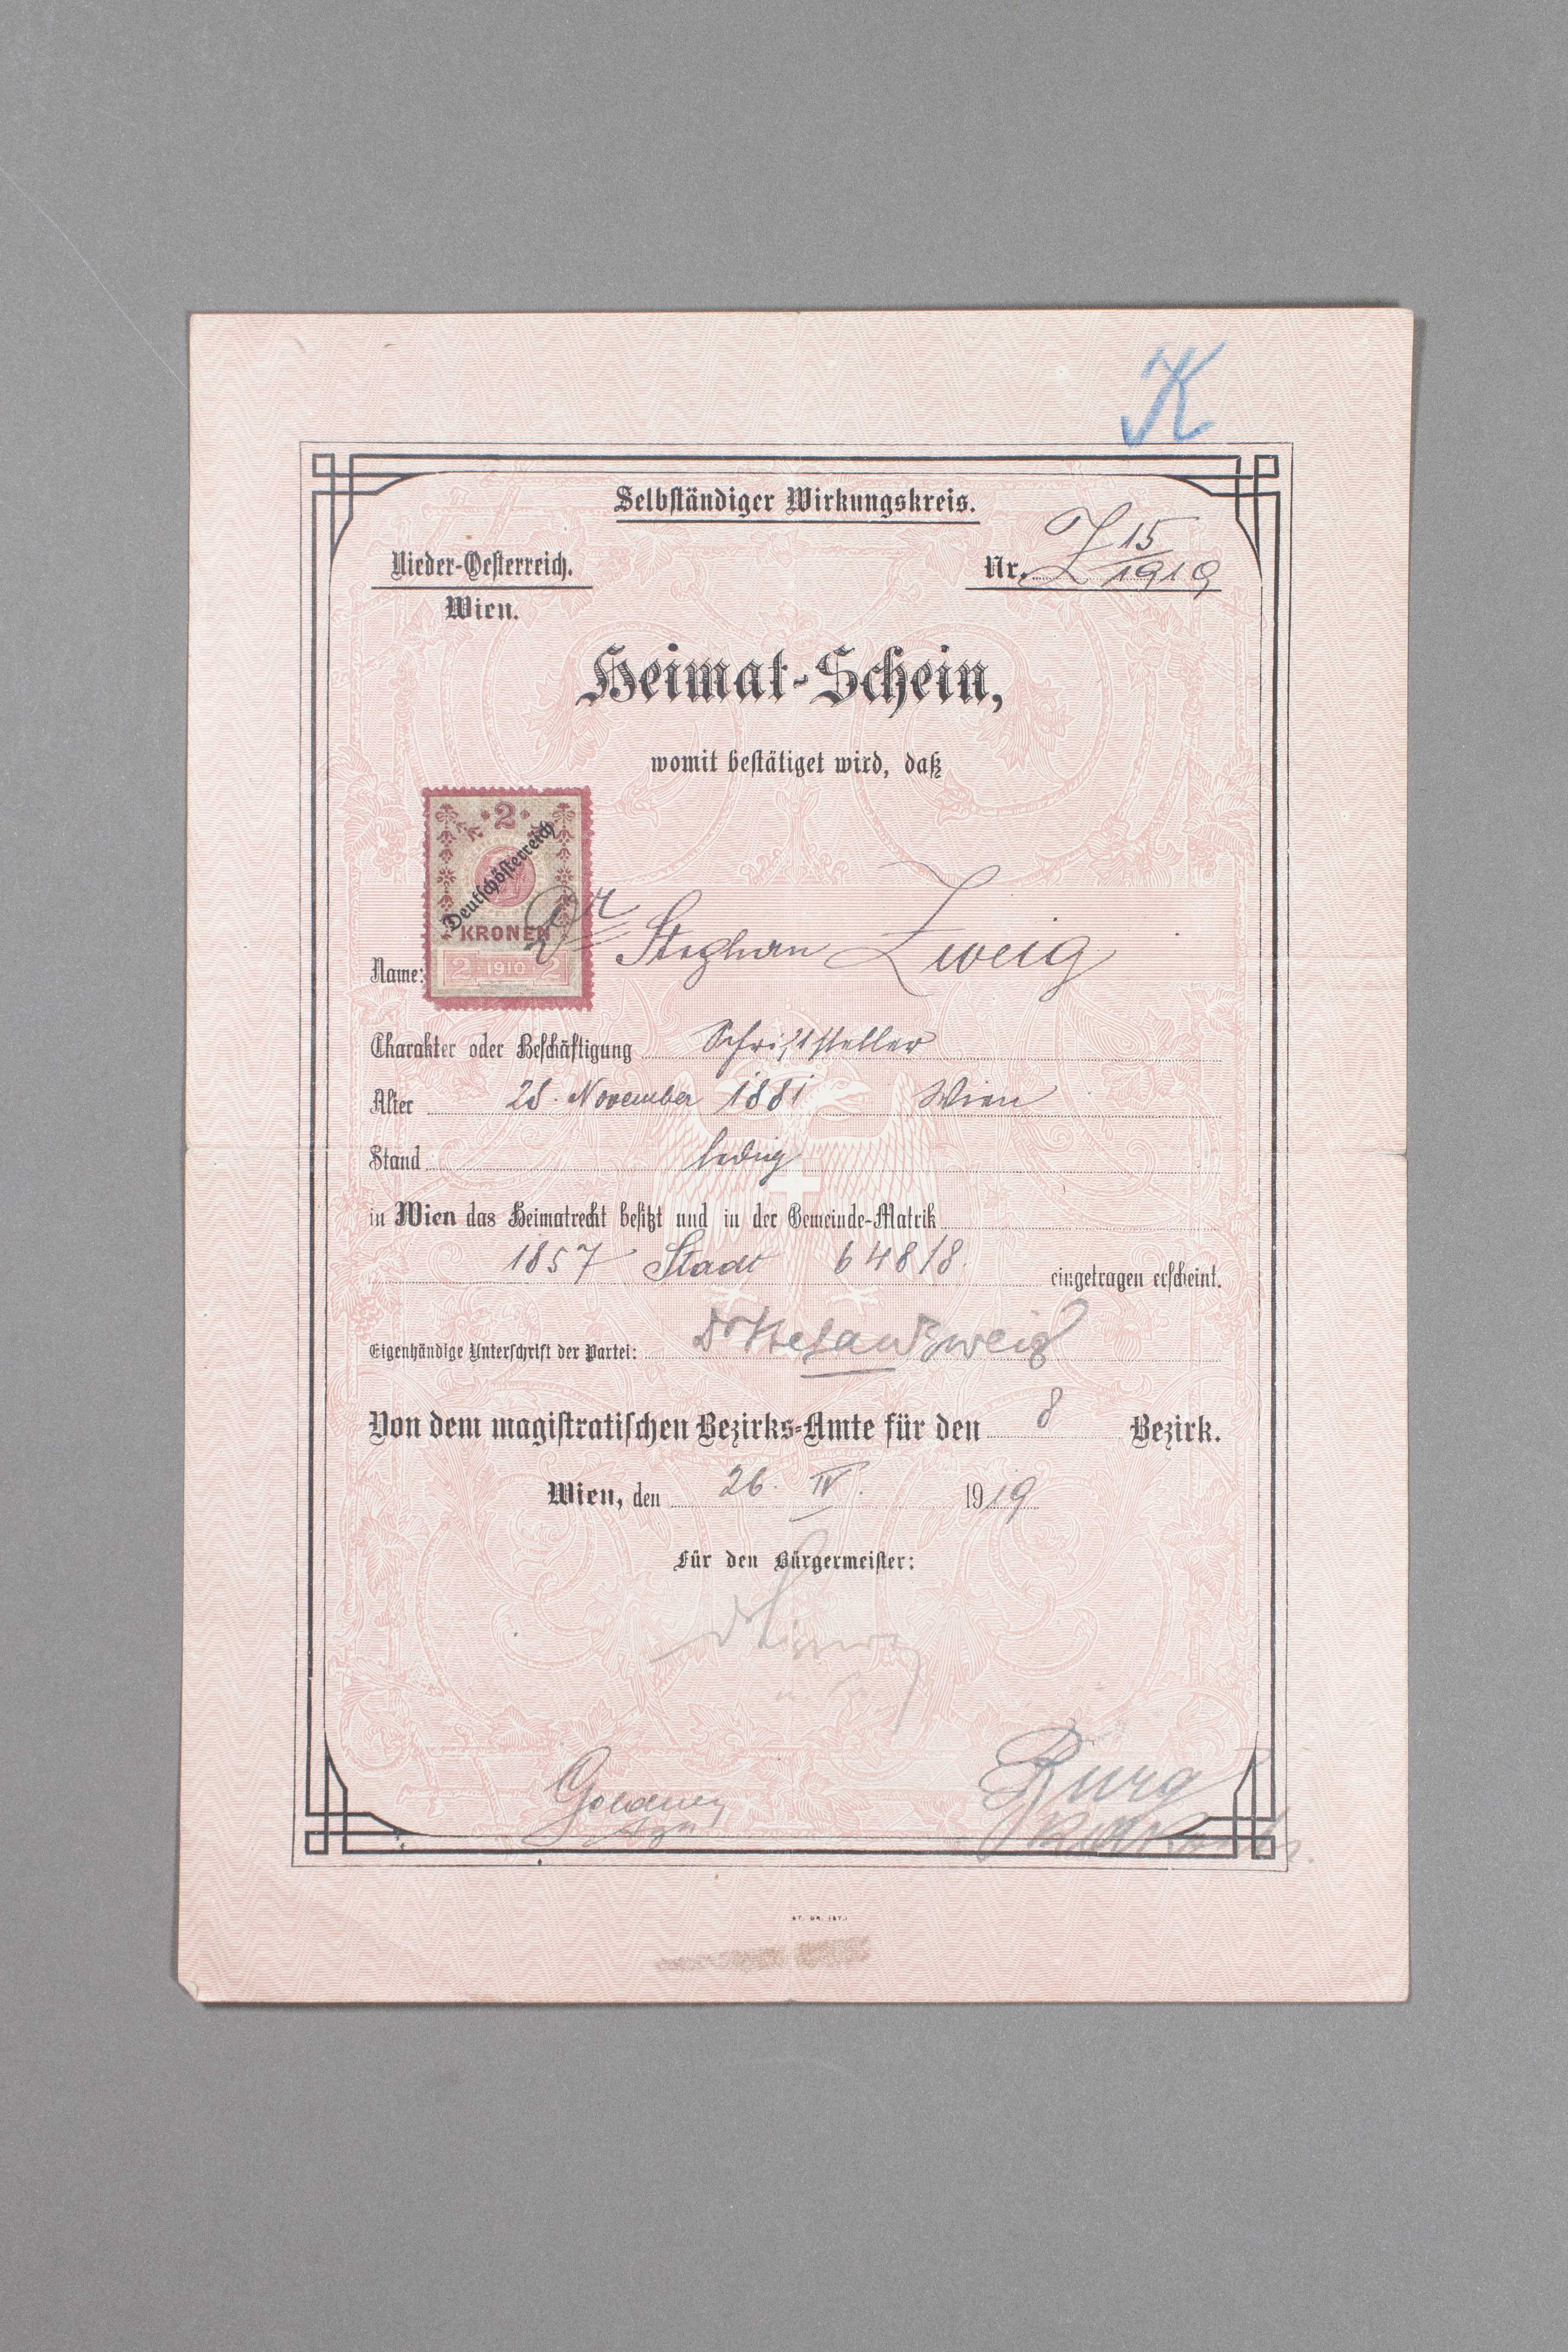 K
Selbständiger Wirkungskreis.
Nieder-Oesterreich.
Wien.
Nr. Z 15/1919
Heimat-Schein,
womit bestätiget wird, daß
2
Deutschösterreich
KRONEN
2 1910 2
Name: Dr Stephan Zweig
Charakter oder Beschäftigung Schriftsteller
Alter 28. November 1881 Wien
Stand ledig
in Wien das Heimatrecht besitzt und in der Gemeinde-Matrik
1857 Stadt 64818 eingetragen erscheint.
Eigenhändige Unterschrift der Partei: Dr Stefan Zweig
Von dem magistratischen Bezirks-Amte für den 8 Bezirk.
Wien, den 26. IV. 1919
Für den Bürgermeister: